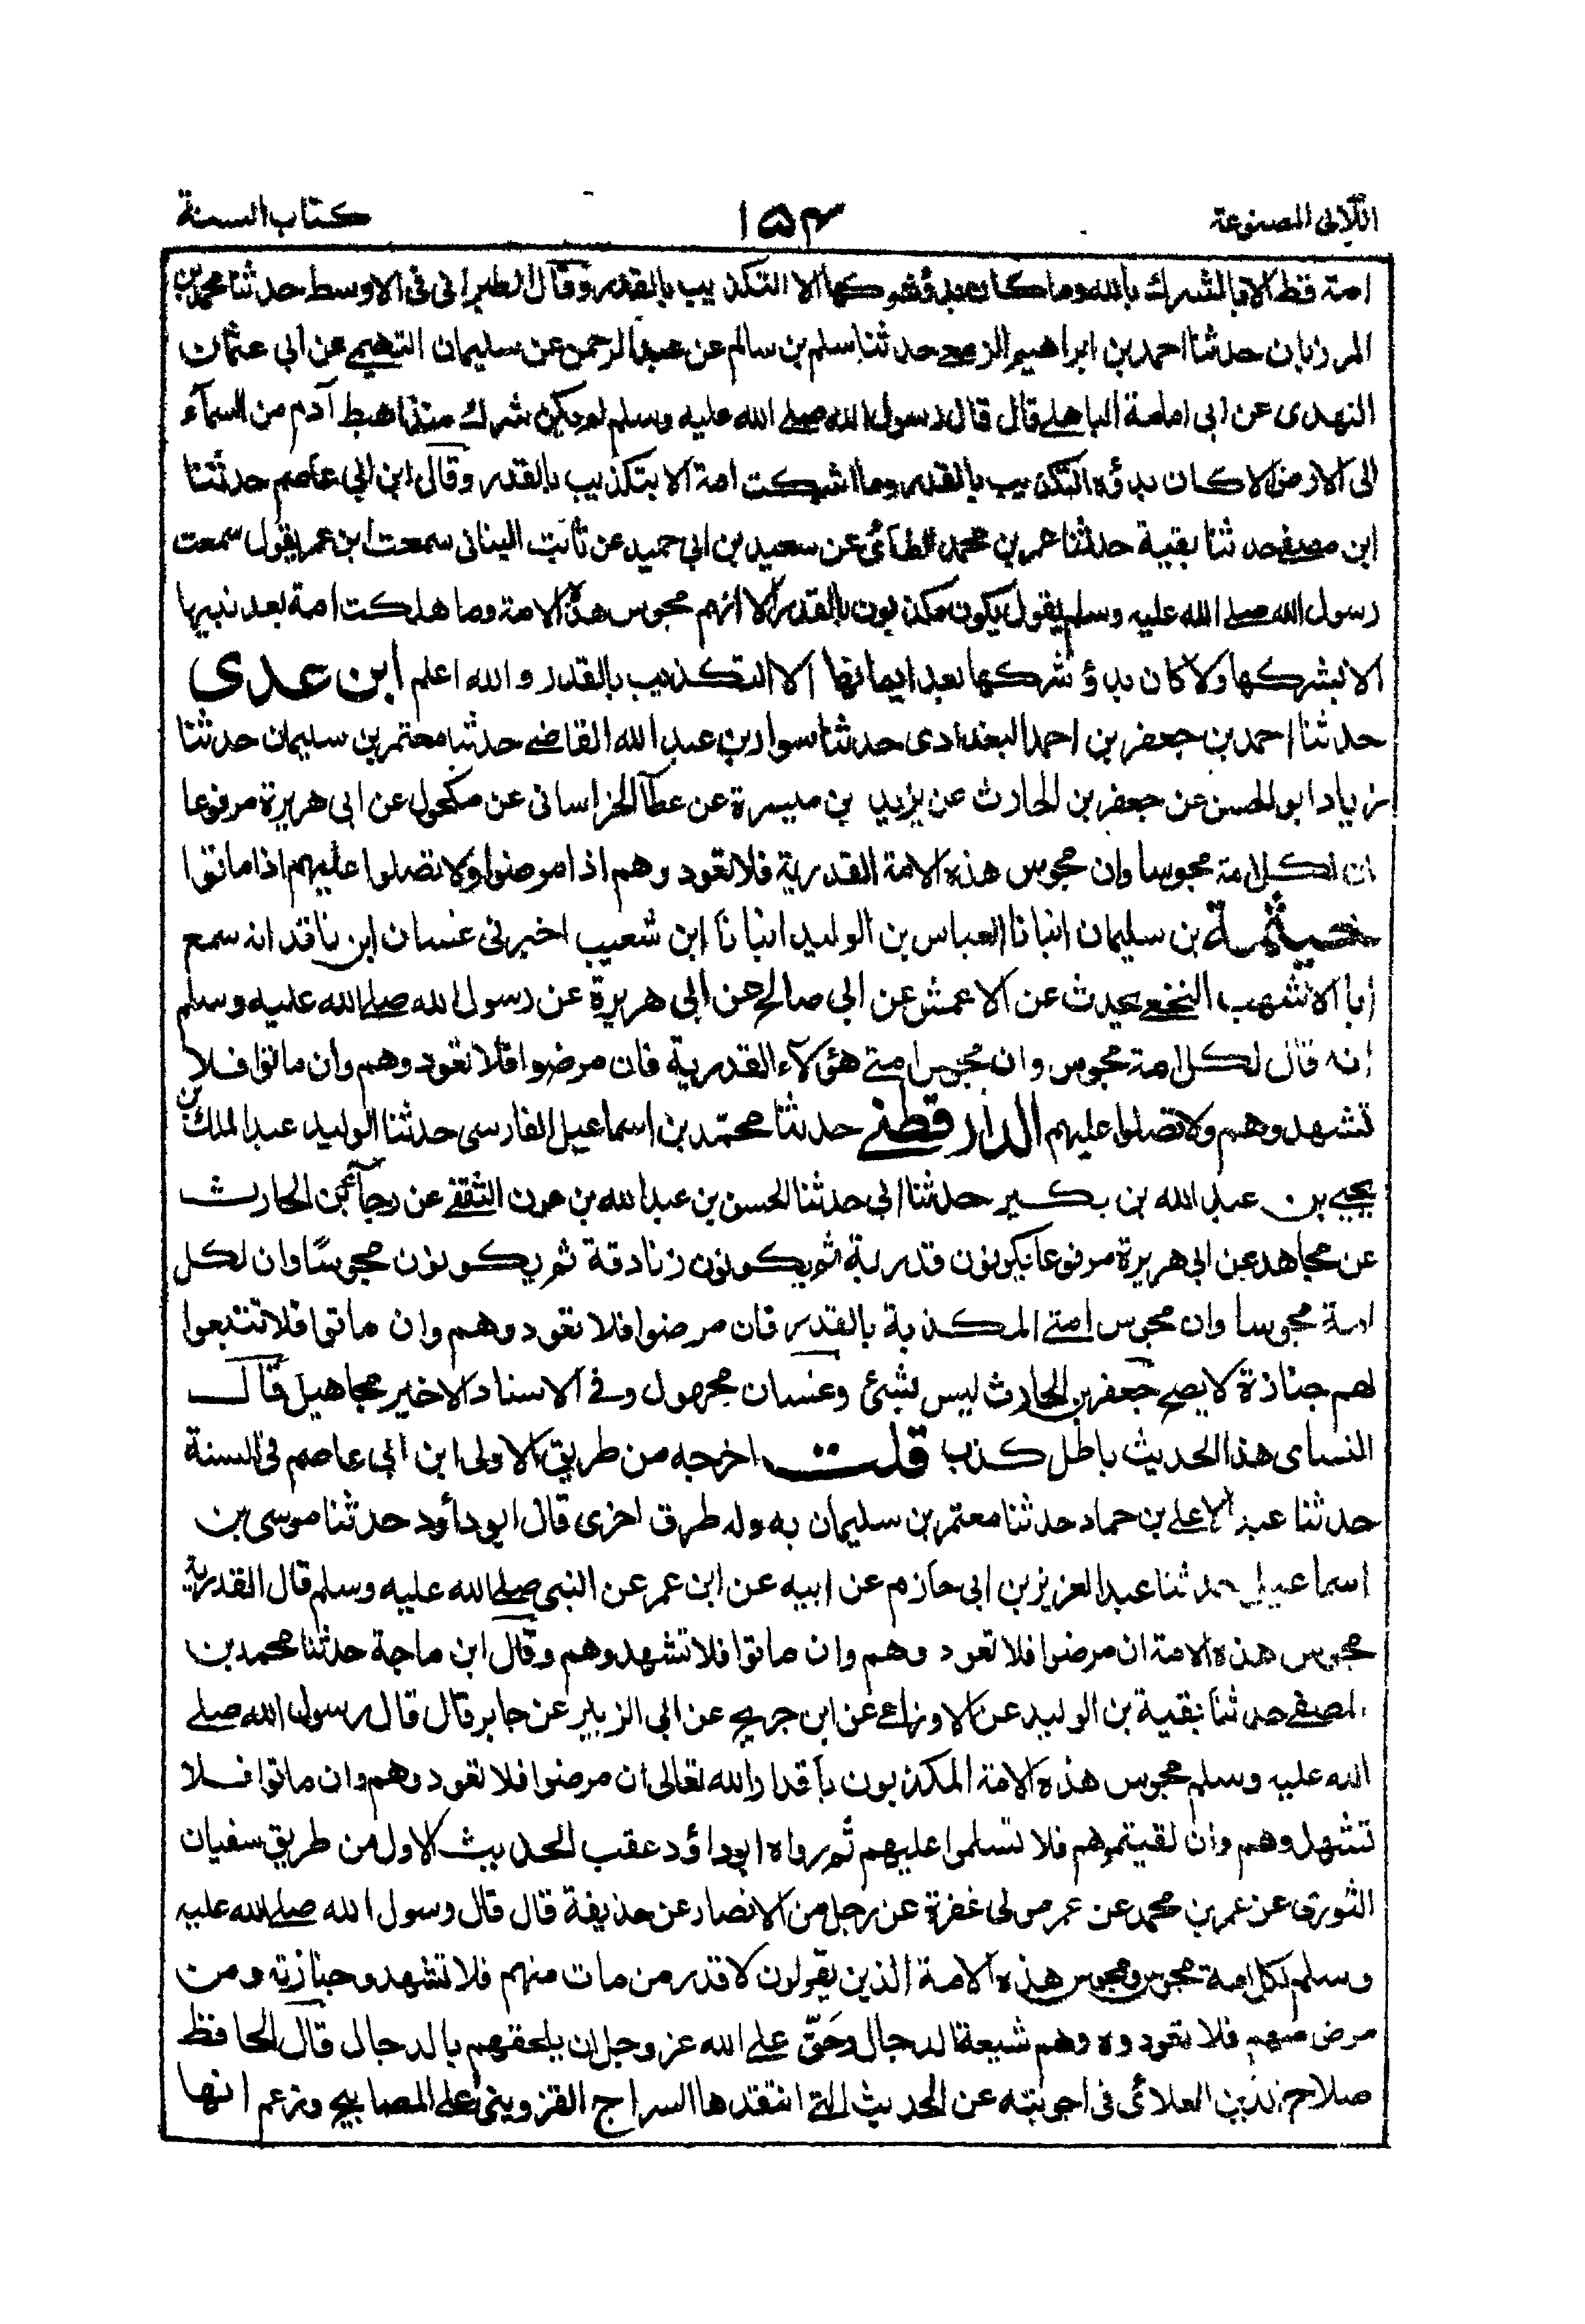 اللآلى المصنوعة ۱۵۴ كتاب السنة
امة قط الا بالشرك بالله وما كان بدؤ شركها الا التكذيب بالقدر وقال الطبرانى فى الاوسط حدثنا محمد بن
المرزبان حدثنا احمد بن ابراهيم حدثنا سلم بن سالم عن عبد الرحمن عن سليمان التيمى عن ابى عثمان
النهدى عن ابى امامة الباهلى قال قال رسول الله صلى الله عليه وسلم لم يكن شرك منذ اهبط آدم من السمآء
الى الارض الا كان بدؤه التكذيب بالقدر وما اشركت امة الا بتكذيب بالقدر وقال ابن ابى عاصم حدثنا
ابن مصفى حدثنا بقية حدثنا عمر بن محمد الطائى عن سعيد بن ابى حميد عن ثابت البنانى سمعت ابن عمر يقول سمعت
رسول الله صلى الله عليه وسلم يقول يكون مكذبون بالقدر الا انهم مجوس هذه الامة وما هلكت امة بعد نبيها
الا بشركها ولا كان بدؤ شركها بعد ايمانها الا التكذيب بالقدر والله اعلم ابن عدى
حدثنا احمد بن جعفر بن احمد البغدادى حدثنا سوار بن عبد الله القاضى حدثنا معتمر بن سليمان حدثنا
زياد ابو الحسن عن جعفر بن الحارث عن يزيد بن ميسرة عن عطآ الخراسانى عن مكحول عن ابى هريرة مرفوعا
ان لكل امة مجوسا وان مجوس هذه الامة القدرية فلا تعودوهم اذا مرضوا ولا تصلوا عليهم اذا ماتوا
خيثمة بن سليمان انبانا العباس بن الوليد انبانا ابن شعيب اخبرنى غسان ابن ناقد انه سمع
ابا الاشهب النخعى يحدث عن الاعمش عن ابى صالح عن ابى هريرة عن رسول الله صلى الله عليه وسلم
انه قال لكل امة مجوس وان مجوس امتى هؤلآء القدرية فان مرضوا فلا تعودوهم وان ماتوا فلا
تشهدوهم ولا تصلوا عليهم الدارقطنى حدثنا محمّد بن اسماعيل الفارسى حدثنا الوليد عبد الملك بن
يحيى بن عبد الله بن بكير حدثنا ابى حدثنا الحسن بن عبد الله بن عون الثقفى عن رجآء بن الحارث
عن مجاهد عن ابى هريرة مرفوعا يكونون قدرية ثم يكونون زنادقة ثم يكونون مجوسًا وان لكل
امة مجوسا وان مجوس امتى المكذبة بالقدر فان مرضوا فلا تعودوهم وان ماتوا فلا تتبعوا
لهم جنازة لا يصح جعفر بن الحارث ليس بشئ وغسان مجهول وفى الاسناد الاخير مجاهيل قال
النساى هذا الحديث باطل كذب قلت اخرجه من طريق الاولى ابن ابى عاصم فى السنة
حدثنا عبد الاعلى بن حماد حدثنا معتمر بن سليمان به وله طرق اخرى قال ابو داؤد حدثنا موسى بن
اسماعيل حدثنا عبد العزيز بن ابى حازم عن ابيه عن ابن عمر عن النبى صلى الله عليه وسلم قال القدرية
مجوس هذه الامة ان مرضوا فلا تعودوهم وان ماتوا فلا تشهدوهم وقال ابن ماجة حدثنا محمد بن
المصفى حدثنا بقية بن الوليد عن الاوزاعى عن ابن جريج عن ابى الزبير عن جابر قال قال رسول الله صلى
الله عليه وسلم مجوس هذه الامة المكذبون باقدار الله تعالى ان مرضوا فلا تعودوهم وان ماتوا فلا
تشهدوهم وان لقيتموهم فلا تسلموا عليهم ثم رواه ابو داؤد عقب الحديث الاول من طريق سفيان
الثورى عن عمر بن محمد عن عمر مولى غفرة عن رجل من الانصار عن حذيفة قال قال رسول الله صلى الله عليه
وسلم لكل امة مجوس ومجوس هذه الامة الذين يقولون لا قدر من مات منهم فلا تشهدو جنازته ومن
مرض منهم فلا تعودوه وهم شيعة الدجال وحَقّ على الله عز وجل ان يلحقهم بالدجال قال الحافظ
صلاح الدين العلائى فى اجوبته عن الحديث التى انتقدها السراج القزوينى على المصابيح وزعم انها